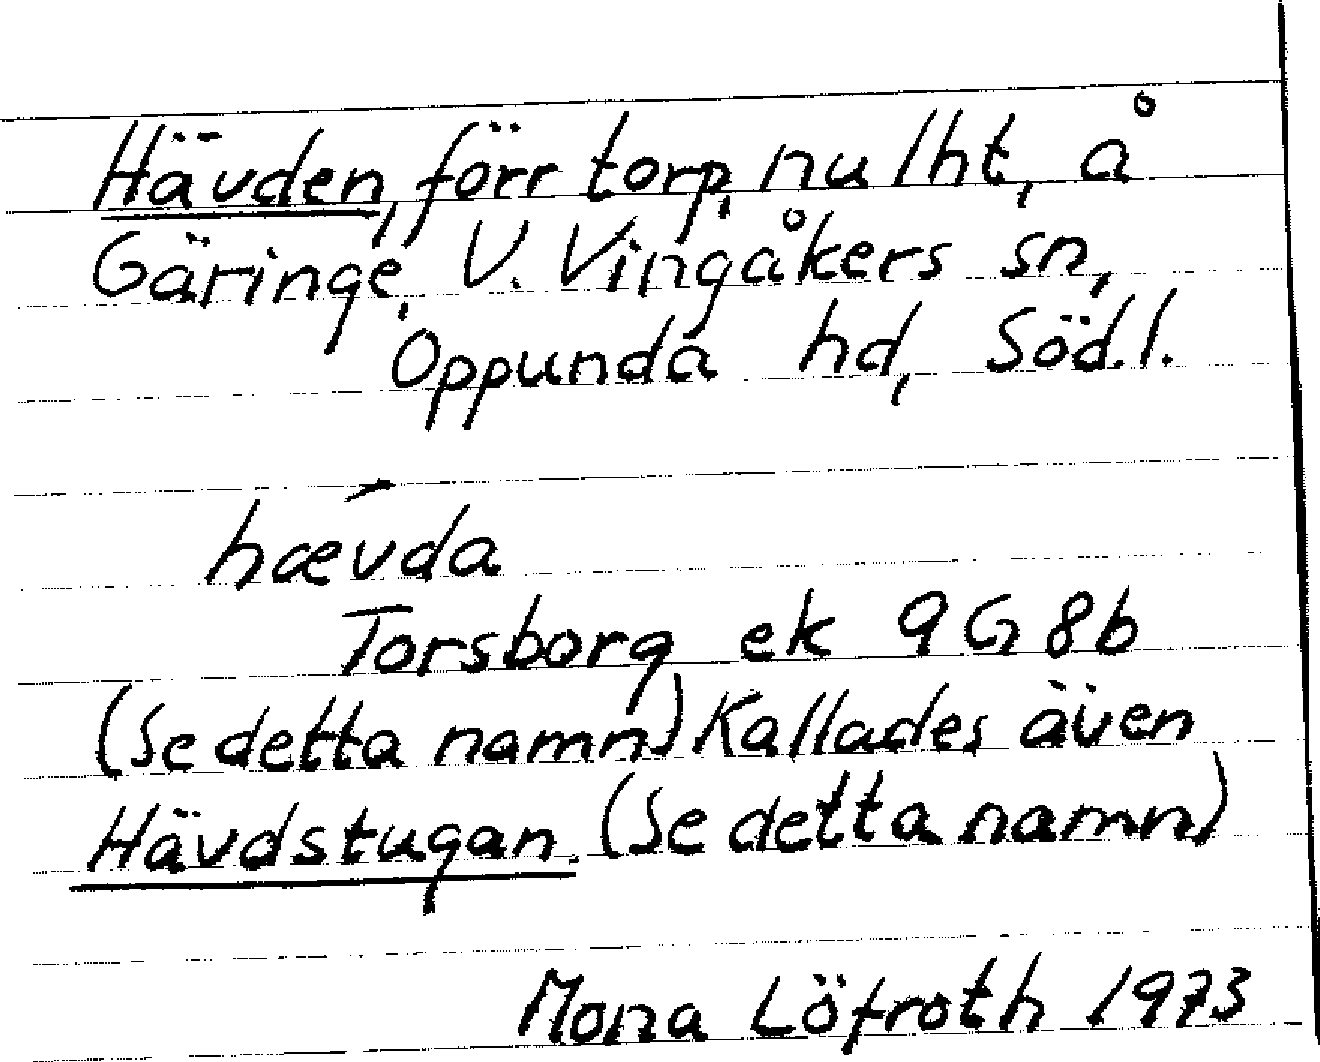 Hävden, förr torp, nu lht, å
Gäringe, V. Vingåkers sn,
Oppunda hd, Södl.
hævda
Torsborg ek 9G8b
(Se detta namn) Kallades även
Hävdstugan. (Se detta namn)
Mona Löfroth 1973